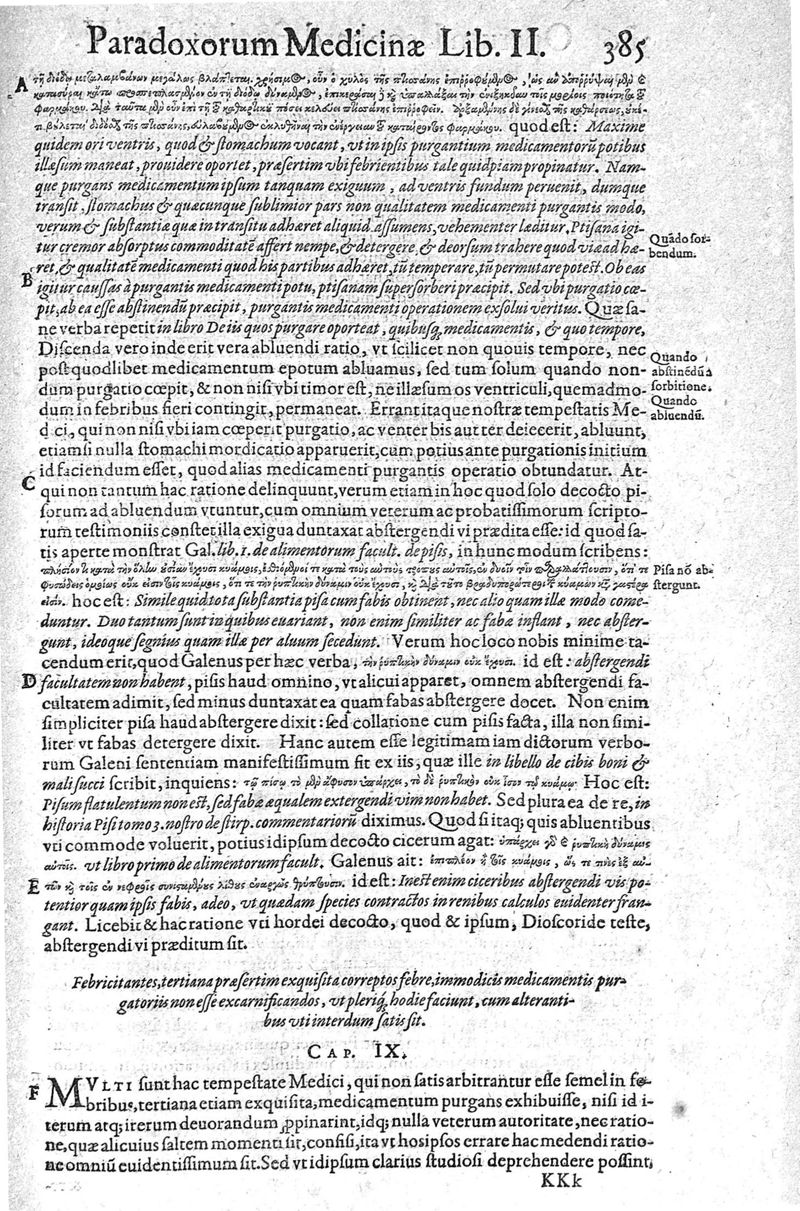 Paradoxorum Medicinæ Lib. II. 385
A
quod est: Maxime
quidem ori ventris, quod & stomachum vocant, vt in ipsis purgantium medicamentorũ potibus
illæsum maneat, prouidere oportet, præsertim vbi febrientibus tale quidpiam propinatur. Nam-
que purgans medicamentum ipsum tanquam exiguum, ad ventris fundum peruenit, dumque
transit, stomachus & quæcunque sublimior pars non qualitatem medicamenti purgantis modo,
verum & substantiæ quæ in transitu adhæret aliquid assumens, vehementer læditur. Ptisana igi-
tur cremor absorptus commoditatē affert nempe, & detergere, & deorsum trahere quod viæ ad hæ-
Quãdo sor-
bendum.
B
ret, & qualitatē medicamenti quod his partibus adhæret, tũ temperare, tũ permutare potest. Ob eas
igitur caussas à purgantis medicamenti potu, ptisanam supersorberi præcipit. Sed vbi purgatio cœ-
pit, ab ea esse abstinendũ præcipit, purgantis medicamenti operationem exsolui veritus. Quæ sa-
ne verba repetit in libro De iis quos purgare oporteat, quibusq; medicamentis, & quo tempore.
Discenda vero inde erit vera abluendi ratio, vt scilicet non quouis tempore, nec
post quodlibet medicamentum epotum abluamus, sed tum solum quando non-
dum purgatio cœpit, & non nisi vbi timor est, ne illæsum os ventriculi, quemadmo-
dum in febribus fieri contingit, permaneat. Errant itaque nostræ tempestatis Me-
Quando
abstinēdũ à
sorbitione.
Quando
abluendũ.
dici, qui non nisi vbi iam cœperit purgatio, ac venter bis aut ter deiecerit, abluunt,
etiamsi nulla stomachi mordicatio apparuerit, cum potius ante purgationis initium
id faciendum esset, quod alias medicamenti purgantis operatio obtundatur. At-
C
qui non tantum hac ratione delinquunt, verum etiam in hoc quod solo decocto pi-
sorum ad abluendum vtuntur, cum omnium veterum ac probatissimorum scripto-
rum testimoniis constet illa exigua duntaxat abstergendi vi prædita esse: id quod sa-
tis aperte monstrat Gal. lib. 1. de alimentorum facult. de pisis, in hunc modum scribens:
Pisa nõ ab-
stergunt.
hoc est: Simile quid tota substantia pisa cum fabis obtinent, nec alio quam illæ modo come-
duntur. Duo tantum sunt in quibus euariant, non enim similiter ac fabæ inflant, nec abster-
gunt, ideoque segnius quam illæ per aluum secedunt. Verum hoc loco nobis minime ta-
cendum erit, quod Galenus per hæc verba, τὴν ῥυπτικὴν δύναμιν οὐκ ἔχουσι. id est: abstergendi
D
facultatem non habent, pisis haud omnino, vt alicui apparet, omnem abstergendi fa-
cultatem adimit, sed minus duntaxat ea quam fabas abstergere docet. Non enim
simpliciter pisa haud abstergere dixit: sed collatione cum pisis facta, illa non simi-
liter vt fabas detergere dixit. Hanc autem esse legitimam iam dictorum verbo-
rum Galeni sententiam manifestissimum fit ex iis, quæ ille in libello de cibis boni &
mali succi scribit, inquiens: Hoc est:
Pisum flatulentum non est, sed fabæ æqualem extergendi vim non habet. Sed plura ea de re, in
historia Pisi tomo 3. nostro de stirp. commentariorũ diximus. Quod si itaq; quis abluentibus
vti commode voluerit, potius id ipsum decocto cicerum agat: ὑπάρχει
αὐτοῖς. vt libro primo de alimentorum facult. Galenus ait:
E
id est: Inest enim ciceribus abstergendi vis po-
tentior quam ipsis fabis, adeo, vt quædam species contractos in renibus calculos euidenter fran-
gant. Licebit & hac ratione vti hordei decocto, quod & ipsum, Dioscoride teste,
abstergendi vi præditum sit.
Febricitantes, tertiana præsertim exquisita correptos febre, immodicis medicamentis pur-
gatoriis non esse excarnificandos, vt pleriq; hodie faciunt, cum alteranti-
bus vti interdum satis sit.
CAP. IX.
F
MVLTI sunt hac tempestate Medici, qui non satis arbitrantur esse semel in fe-
bribus, tertiana etiam exquisita, medicamentum purgans exhibuisse, nisi id i-
terum atq; iterum deuorandum ꝓpinarint, idq; nulla veterum autoritate, nec ratio-
ne, quæ alicuius saltem momenti sit, confisi, ita vt hos ipsos errare hac medendi ratio-
ne omniũ euidentissimum sit. Sed vt id ipsum clarius studiosi deprehendere possint,
KKk